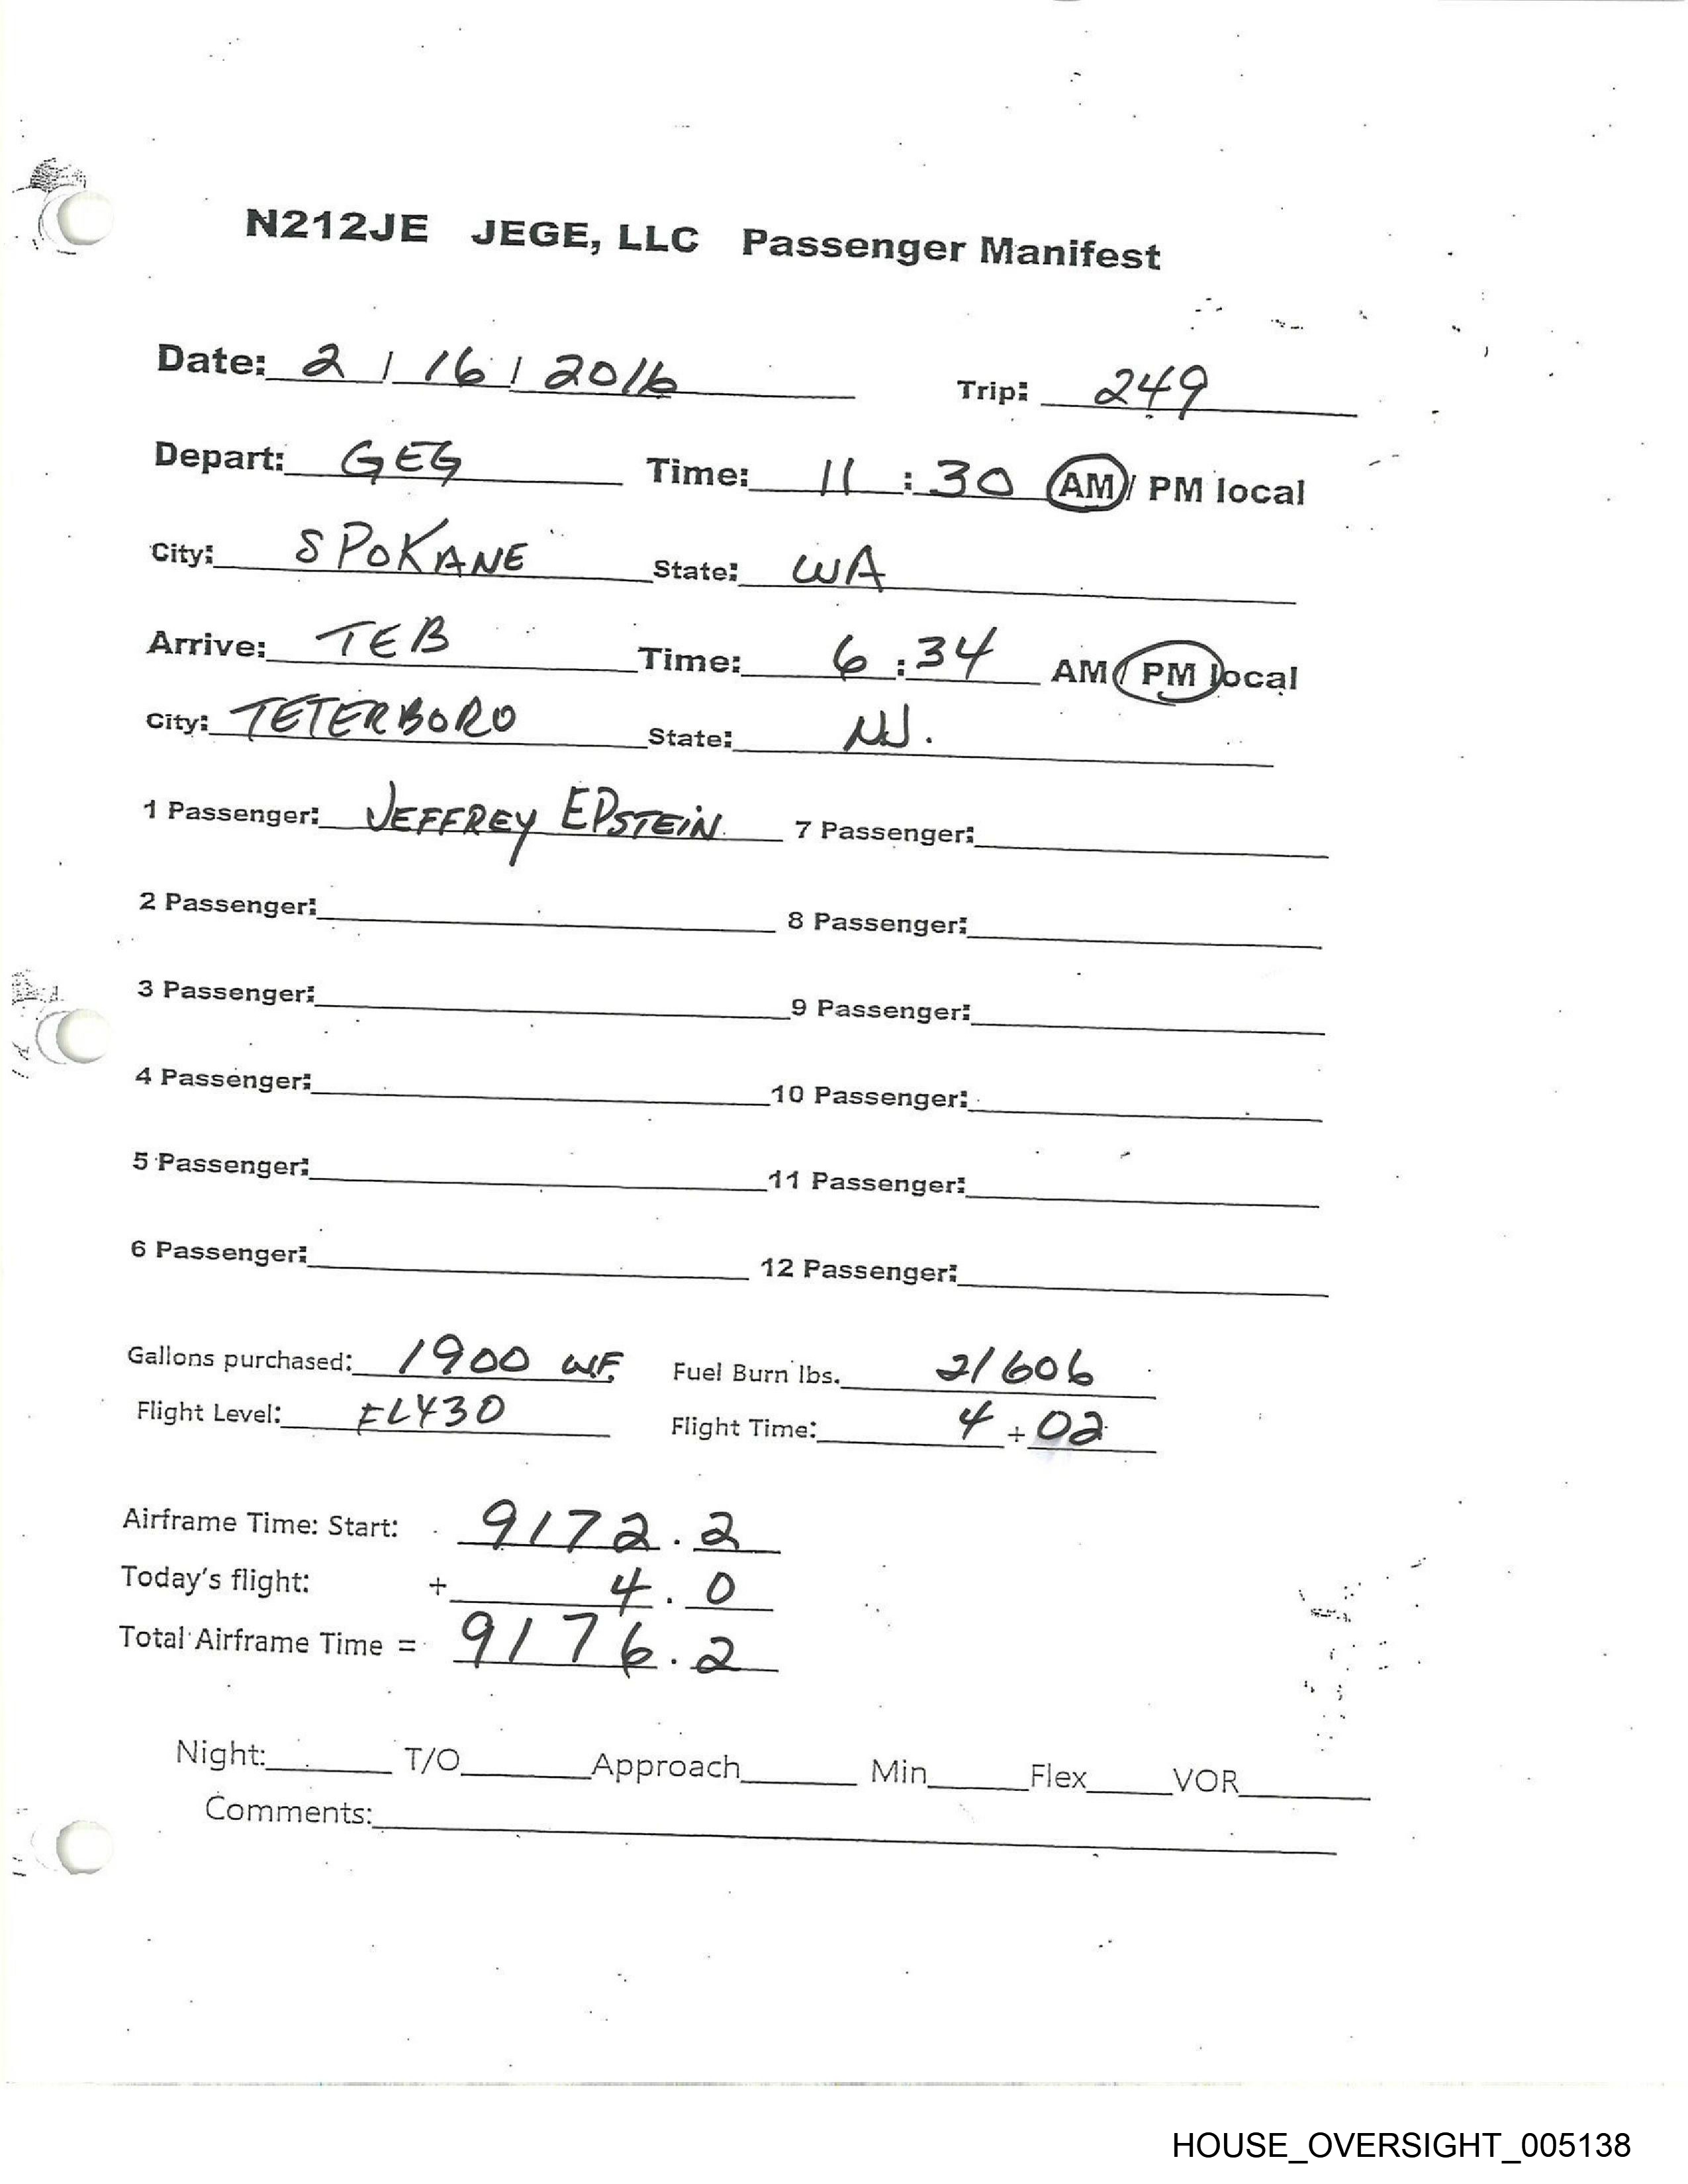 N212JE JEGE, LLC Passenger Manifest
Date: 2 / 16 / 2016 Trip: 249
Depart: GEG Time: 11 : 30 AM / PM local
City: SPOKANE State: WA
Arrive: TEB Time: 6 : 34 AM / PM local
City: TETERBORO State: NJ.
1 Passenger: JEFFREY EPSTEIN 7 Passenger:
2 Passenger: 8 Passenger:
3 Passenger: 9 Passenger:
4 Passenger: 10 Passenger:
5 Passenger: 11 Passenger:
6 Passenger: 12 Passenger:
Gallons purchased: 1900 W.F. Fuel Burn lbs. 21606
Flight Level: FL430 Flight Time: 4 + 02
Airframe Time: Start: 9172.2
Today's flight: + 4.0
Total Airframe Time = 9176.2
Night: T/O Approach Min Flex VOR
Comments:
HOUSE_OVERSIGHT_005138